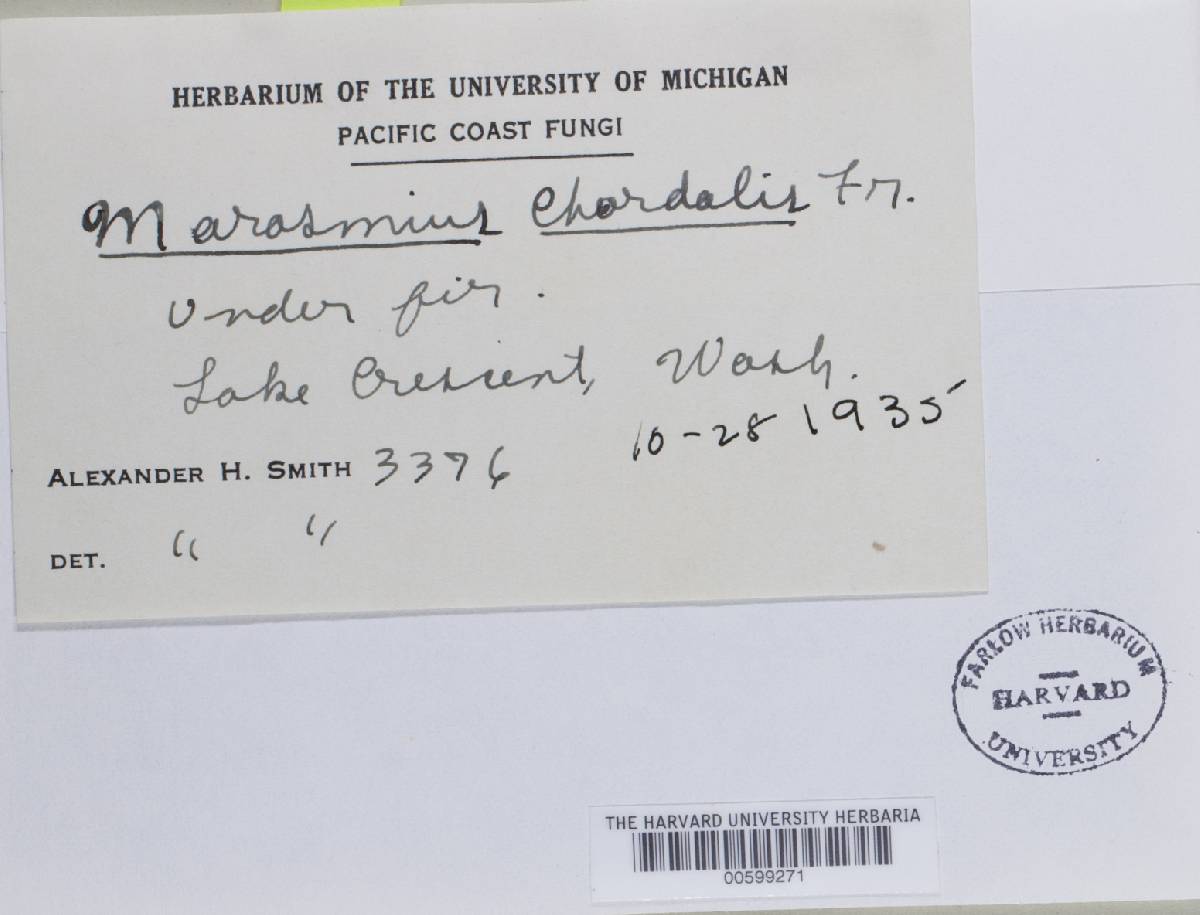 HERBARIUM OF THE UNIVERSITY OF MICHIGAN
PACIFIC COAST FUNGI
Marasmius Chordalis Fr.
Under fir.
Lake Crescent, Wash.
10-28 1935
ALEXANDER H. SMITH 3376
DET. " "
FARLOW HERBARIUM
HARVARD
UNIVERSITY
THE HARVARD UNIVERSITY HERBARIA
00599271